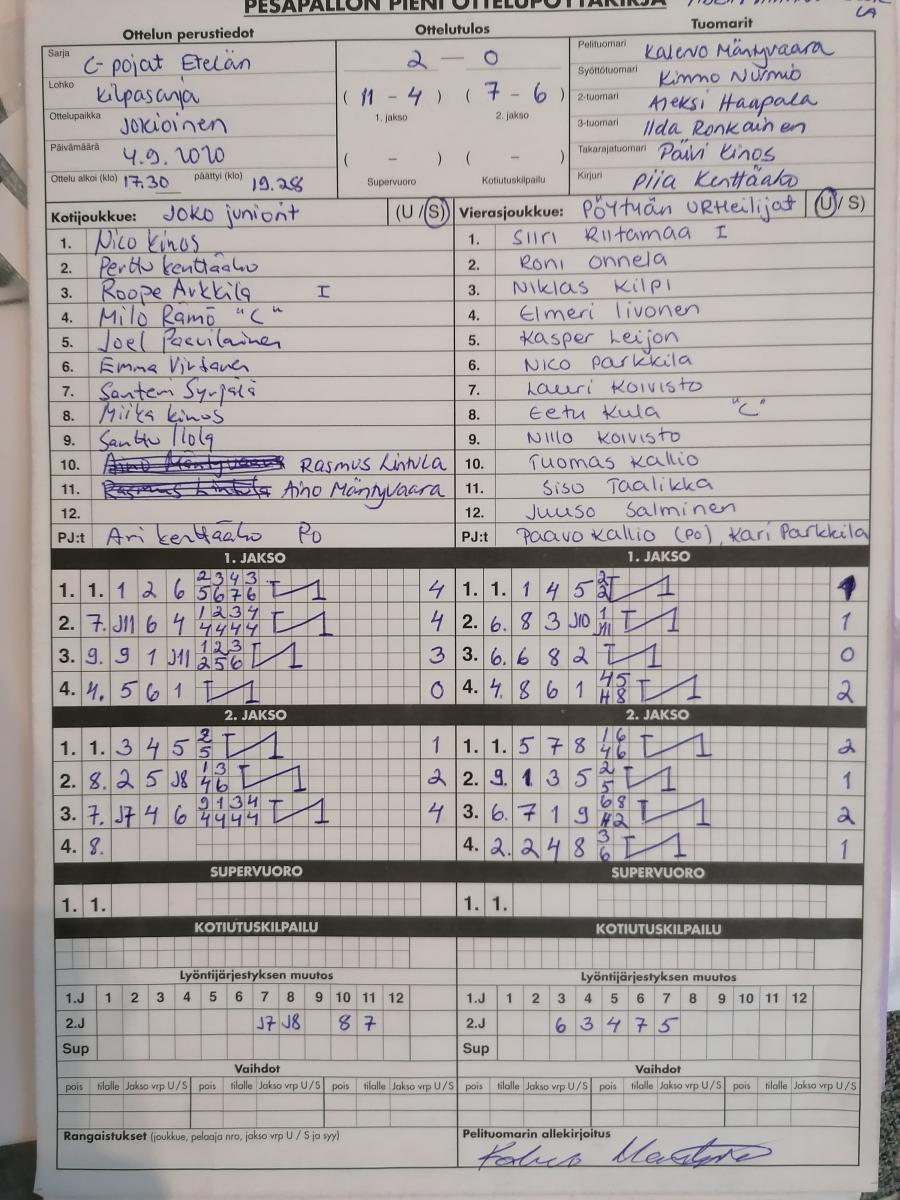 PESÄPALLON PIENI OTTELUPÖYTÄKIRJA
Ottelun perustiedot
Ottelutulos
Tuomarit
Sarja C-pojat Etelän
Lohko Kilpasarja
Ottelupaikka Jokioinen
Päivämäärä 4.9.2020
Ottelu alkoi (klo) 17.30 päättyi (klo) 19.28
2 – 0
( 11 - 4 ) ( 7 - 6 )
1. jakso 2. jakso
( - ) ( - )
Supervuoro Kotiutuskilpailu
Pelituomari Kalervo Mäntyvaara
Syöttötuomari Kimmo Nurmio
2-tuomari Aleksi Haapala
3-tuomari Ilda Ronkainen
Takarajatuomari Päivi Kinos
Kirjuri Piia Kenttäaho
Kotijoukkue: JOKO juniorit (U / S)
1. Nico Kinos
2. Perttu Kenttäaho
3. Roope Arkkila I
4. Milo Rämö "C"
5. Joel Paavilainen
6. Emma Virtanen
7. Santeri Syrjälä
8. Miika Kinos
9. Santtu Ilola
10. Rasmus Lintula
11. Aino Mäntyvaara
12.
PJ:t Ari Kenttäaho PO
Vierasjoukkue: PÖYTYÄN URHEILIJAT (U / S)
1. Siiri Riitamaa I
2. Roni Onnela
3. Niklas Kilpi
4. Elmeri Iivonen
5. Kasper Leijon
6. Nico Parkkila
7. Lauri Koivisto
8. Eetu Kula "C"
9. Niilo Koivisto
10. Tuomas Kallio
11. Sisu Taalikka
12. Juuso Salminen
PJ:t Paavo Kallio (PO), Kari Parkkila
1. JAKSO
1. 1. 1 2 6 2 3 4 3 4
5 6 7 6
2. 7. J11 6 4 1 2 3 4 4
4 4 4 4
3. 9. 9 1 J11 1 2 3 3
2 5 6
4. 4. 5 6 1 0
1. JAKSO
1. 1. 1 4 5 2 1
2
2. 6. 8 3 J10 1 1
J11
3. 6. 6 8 2 0
4. 4. 8 6 1 4 5 2
H 8
2. JAKSO
1. 1. 3 4 5 2 1
5
2. 8. 2 5 J8 1 3 2
4 6
3. 7. J7 4 6 9 1 3 4 4
4 4 4 4
4. 8.
2. JAKSO
1. 1. 5 7 8 1 6 2
4 6
2. 9. 1 3 5 2 1
5
3. 6. 7 1 9 6 8 2
H 2
4. 2. 2 4 8 3 1
6
SUPERVUORO
1. 1.
SUPERVUORO
1. 1.
KOTIUTUSKILPAILU
KOTIUTUSKILPAILU
Lyöntijärjestyksen muutos
1.J 1 2 3 4 5 6 7 8 9 10 11 12
2.J J7 J8 8 7
Sup
Lyöntijärjestyksen muutos
1.J 1 2 3 4 5 6 7 8 9 10 11 12
2.J 6 3 4 7 5
Sup
Vaihdot
pois tilalle Jakso vrp U / S pois tilalle Jakso vrp U / S pois tilalle Jakso vrp U / S
Vaihdot
pois tilalle Jakso vrp U / S pois tilalle Jakso vrp U / S pois tilalle Jakso vrp U / S
Rangaistukset (joukkue, pelaaja nro, jakso vrp U / S ja syy)
Pelituomarin allekirjoitus